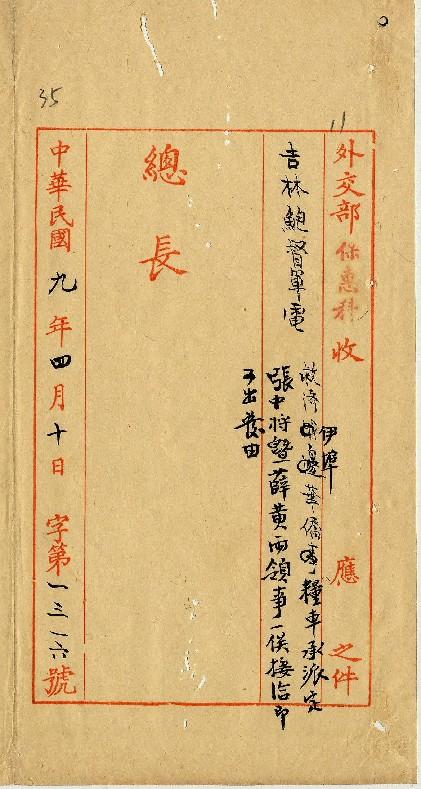 外交部保惠科收 應 之件
吉林鮑督軍電
救濟伊埠華僑糧車承派定
張中將暨薛黃兩領事一俟接洽即
可出發由
總長
中華民國九年四月十日 字第一三一六號
35
11